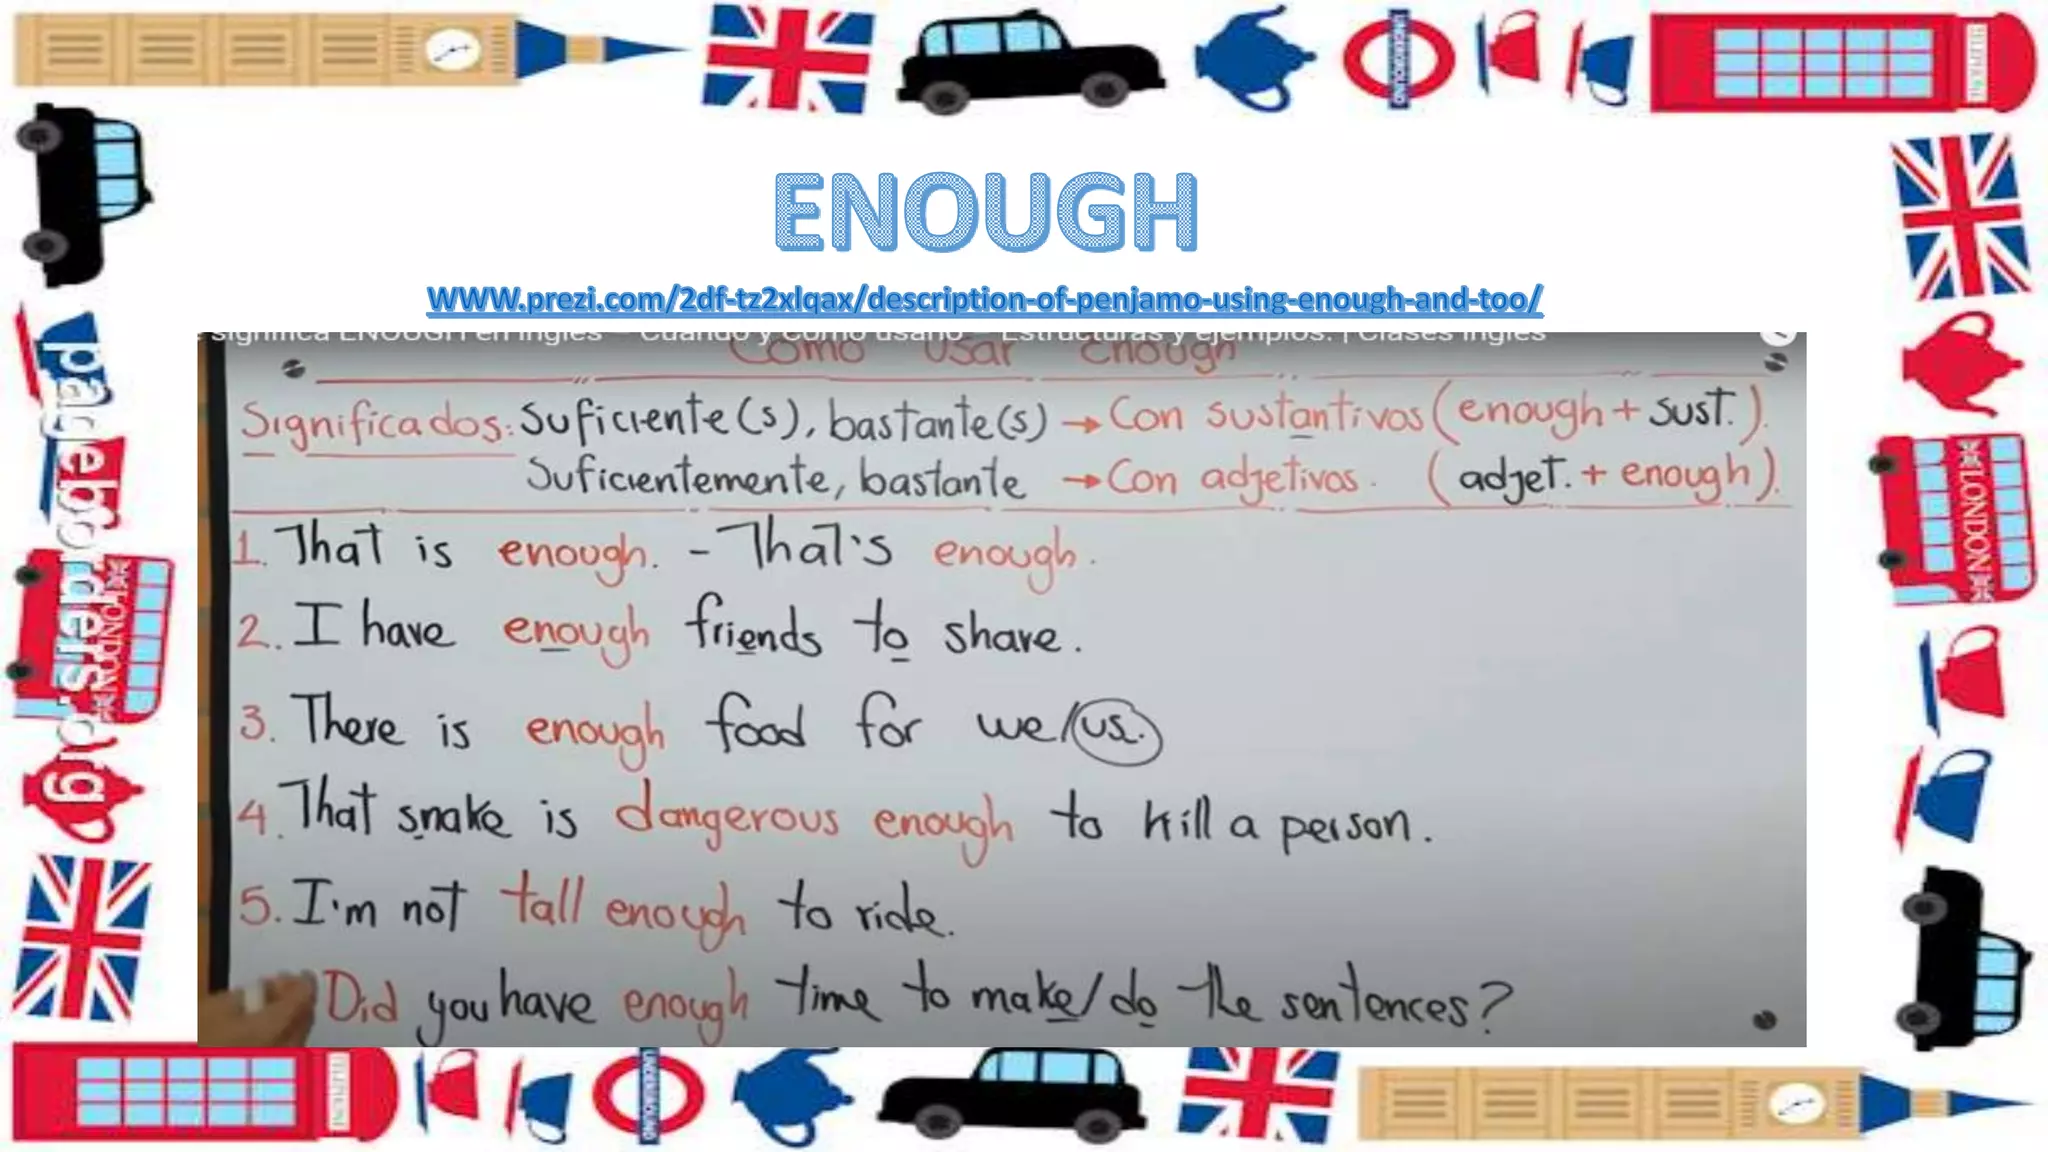 ENOUGH
WWW.prezi.com/2df-tz2xlqax/description-of-penjamo-using-enough-and-too/
significa ENOUGH en inglés Cuándo y Cómo usarlo Estructuras y ejemplos. | Clases Inglés
Como usar enough
Significados: Suficiente(s), bastante(s) → Con sustantivos (enough + sust.).
Suficientemente, bastante → Con adjetivos. (adjet. + enough).
1. That is enough. - That's enough.
2. I have enough friends to share.
3. There is enough food for we/us.
4. That snake is dangerous enough to kill a person.
5. I'm not tall enough to ride.
Did you have enough time to make/do the sentences?
pageborders.org
UNDERGROUND
TELEPHONE
LONDON
LONDON
TELEPHONE
UNDERGROUND